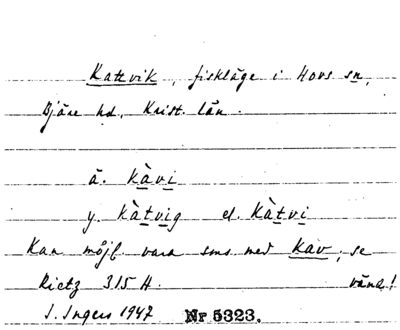 Kattvik, fiskläge i Hovs sn,
Bjäre hd, Krist. län.
ä. kàvi
y. kàtvig el. kàtvi
Kan möjl. vara sms med kav, se
Rietz 315 H. vänd!
I. Ingers 1947 Nr 5323.